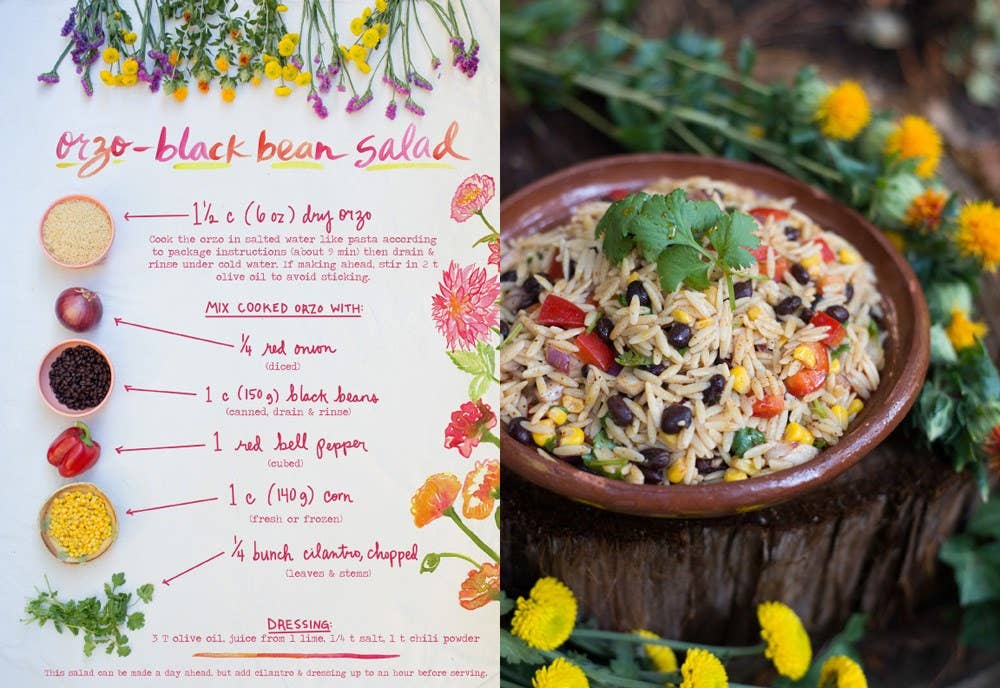 orzo-black bean salad
1½ c (6 oz) dry orzo
Cook the orzo in salted water like pasta according
to package instructions (about 9 min) then drain &
rinse under cold water. If making ahead, stir in 2 t
olive oil to avoid sticking.
MIX COOKED ORZO WITH:
¼ red onion
(diced)
1 c (150g) black beans
(canned, drain & rinse)
1 red bell pepper
(cubed)
1 c (140g) corn
(fresh or frozen)
¼ bunch cilantro, chopped
(leaves & stems)
DRESSING:
3 T olive oil, juice from 1 lime, 1/4 t salt, 1 t chili powder
This salad can be made a day ahead, but add cilantro & dressing up to an hour before serving.